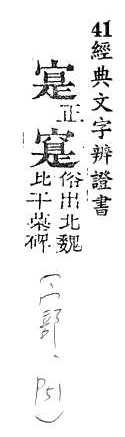 41經典文字辨證書
寔正
俗出北魏
比干墓碑
(宀部、P51)